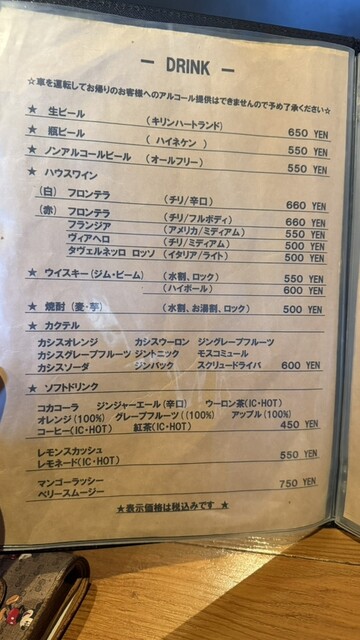 — DRINK —
☆車を運転してお帰りのお客様へのアルコール提供はできませんので予め了承ください☆
★ 生ビール (キリンハートランド) 650 YEN
★ 瓶ビール ( ハイネケン ) 550 YEN
★ ノンアルコールビール (オールフリー) 550 YEN
★ ハウスワイン
(白) フロンテラ (チリ/辛口) 660 YEN
(赤) フロンテラ (チリ/フルボディ) 660 YEN
フランジア (アメリカ/ミディアム) 550 YEN
ヴィアヘロ (チリ/ミディアム) 500 YEN
タヴェルネッロ ロッソ (イタリア/ライト) 500 YEN
★ ウイスキー(ジム・ビーム) (水割、ロック) 550 YEN
(ハイボール) 600 YEN
★ 焼酎 (麦・芋) (水割、お湯割、ロック) 500 YEN
★ カクテル
カシスオレンジ カシスウーロン ジングレープフルーツ
カシスグレープフルーツ ジントニック モスコミュール
カシスソーダ ジンバック スクリュードライバ 600 YEN
★ ソフトドリンク
コカコーラ ジンジャーエール(辛口) ウーロン茶(IC・HOT)
オレンジ(100%) グレープフルーツ((100%) アップル(100%)
コーヒー(IC・HOT) 紅茶(IC・HOT) 450 YEN
レモンスカッシュ
レモネード(IC・HOT) 550 YEN
マンゴーラッシー
ベリースムージー 750 YEN
★表示価格は税込みです ★